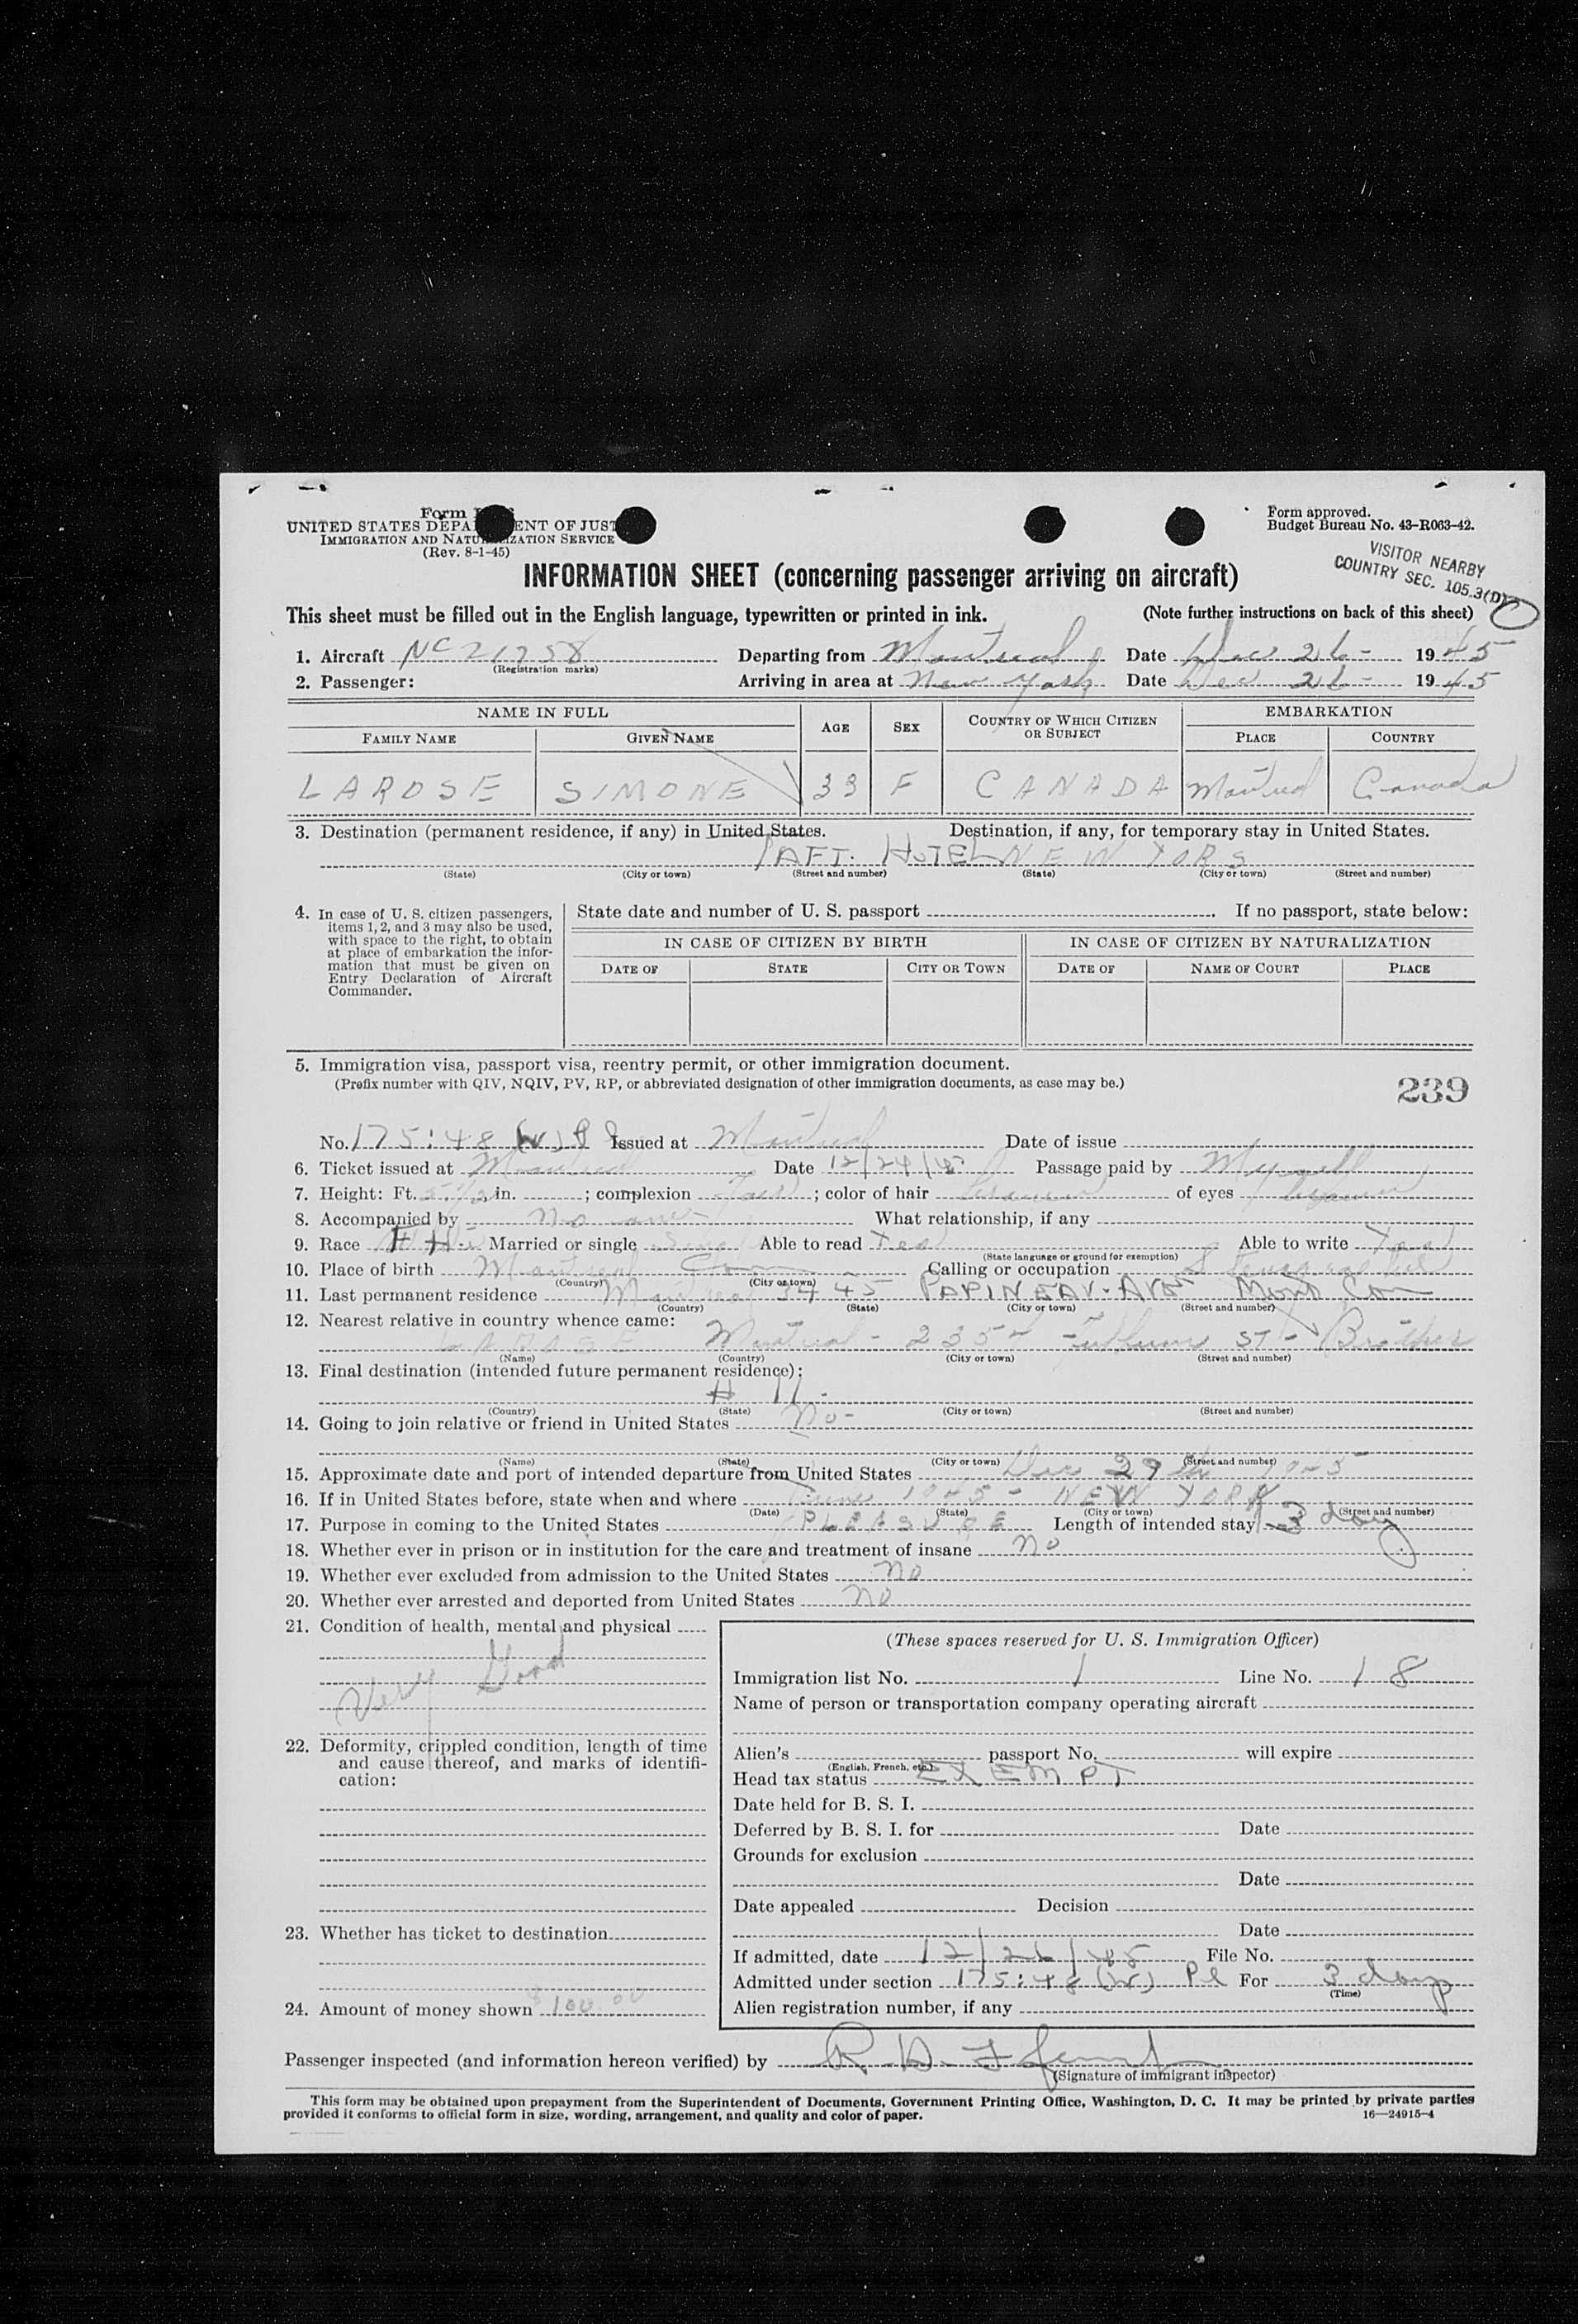 Form
UNITED STATES DEPA ENT OF JUST
IMMIGRATION AND NATU IZATION SERVICE
(Rev. 8-1-45)
Form approved.
Budget Bureau No. 43-R063-42.
VISITOR NEARBY
COUNTRY SEC. 105.3(D)
INFORMATION SHEET (concerning passenger arriving on aircraft)
This sheet must be filled out in the English language, typewritten or printed in ink. (Note further instructions on back of this sheet)
1. Aircraft NC 21758 Departing from Montreal Date Dec 26- 1945
(Registration marks)
2. Passenger: Arriving in area at New York Date Dec 26- 1945
NAME IN FULL AGE SEX COUNTRY OF WHICH CITIZEN OR SUBJECT EMBARKATION
FAMILY NAME GIVEN NAME PLACE COUNTRY
LAROSE SIMONE 33 F CANADA Montreal Canada
3. Destination (permanent residence, if any) in United States. Destination, if any, for temporary stay in United States.
TAFT. HOTEL NEW YORK
(State) (City or town) (Street and number) (State) (City or town) (Street and number)
4. In case of U. S. citizen passengers, items 1, 2, and 3 may also be used, with space to the right, to obtain at place of embarkation the information that must be given on Entry Declaration of Aircraft Commander.
State date and number of U. S. passport If no passport, state below:
IN CASE OF CITIZEN BY BIRTH IN CASE OF CITIZEN BY NATURALIZATION
DATE OF STATE CITY OR TOWN DATE OF NAME OF COURT PLACE
5. Immigration visa, passport visa, reentry permit, or other immigration document.
(Prefix number with QIV, NQIV, PV, RP, or abbreviated designation of other immigration documents, as case may be.)
239
No. 175:48 Issued at Montreal Date of issue
6. Ticket issued at Montreal Date 12/24/45 Passage paid by Myself
7. Height: Ft. in. ; complexion Fair ; color of hair brown of eyes brown
8. Accompanied by No one What relationship, if any
9. Race FH. Married or single Single Able to read Yes Able to write Yes
(State language or ground for exemption)
10. Place of birth Montreal Can Calling or occupation
(Country) (City or town)
11. Last permanent residence Montreal 3445 PAPINEAU. AVE Mont Can
(Country) (State) (City or town) (Street and number)
12. Nearest relative in country whence came:
LAROSE Montreal - 235 ST - Brother
(Name) (Country) (City or town) (Street and number)
13. Final destination (intended future permanent residence):
(Country) (State) (City or town) (Street and number)
14. Going to join relative or friend in United States No-
(Name) (State) (City or town) (Street and number)
15. Approximate date and port of intended departure from United States Dec 29th 1945
16. If in United States before, state when and where June 1945 - NEW YORK
(Date) (State) (City or town) (Street and number)
17. Purpose in coming to the United States PLEASURE Length of intended stay 3 day
18. Whether ever in prison or in institution for the care and treatment of insane No
19. Whether ever excluded from admission to the United States No
20. Whether ever arrested and deported from United States No
21. Condition of health, mental and physical
Very Good
22. Deformity, crippled condition, length of time and cause thereof, and marks of identification:
23. Whether has ticket to destination
24. Amount of money shown $100.00
(These spaces reserved for U. S. Immigration Officer)
Immigration list No. 1 Line No. 18
Name of person or transportation company operating aircraft
Alien's passport No. will expire
(English, French, etc.)
Head tax status EXEMPT
Date held for B. S. I.
Deferred by B. S. I. for Date
Grounds for exclusion
Date
Date appealed Decision
Date
If admitted, date 12/26/45 File No.
Admitted under section 175:48 Pl For 3 days
(Time)
Alien registration number, if any
Passenger inspected (and information hereon verified) by
(Signature of immigrant inspector)
This form may be obtained upon prepayment from the Superintendent of Documents, Government Printing Office, Washington, D. C. It may be printed by private parties
provided it conforms to official form in size, wording, arrangement, and quality and color of paper. 16—24915-4